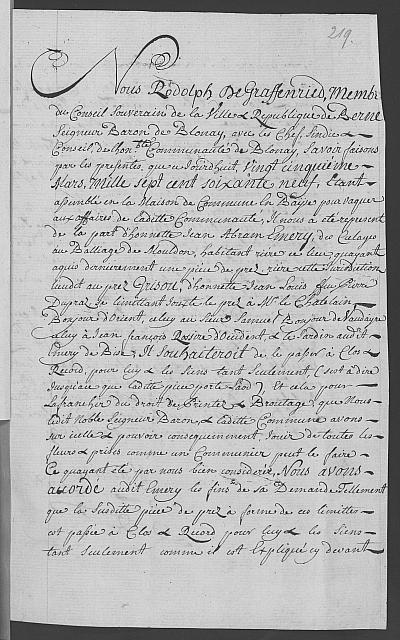 219.
Nous Rodolph De Graffenried, Membre
du Conseil Souverain de la Ville & Republique de Berne
Seigneur Baron de Blonay, avec les Chef, Sindic &
Conseil de l'honble Communauté de Blonay, Savoir faisons
par les presentes, que ce Jourdhuit, Vingt cinquième
Mars, Mille Sept Cent Soixante neuf, Etant
assemblé en la Maison de Commune en Baye pour vaquer
aux affaires de laditte Communauté, Il nous a eté representé
de la part d'honnette Jean Abram Emery, des Culayes
au Balliage de Moudon, habitant riere ce lieu quayant
aquis dernierement une piece de prez riere cette Jurisdiction
lieudit au prez Grison, d'honnette Jean Louis feu Pierre
Dupraz, Se limitant Jouxte le prez à Mr. le Chatelain
Bonjour d'Orient, celuy au Sieur Samuel Bonjour de
Celuy à Jean François d'Occident, & le Jardin audit
Emery de Bise, Il Souhaiteroit de le passer à Clos &
Record, pour luy & les Siens tant Seulement (c'est à dire
Jusqu'au que ladite piece porte ) Et cela pour
Lafranchir du droit de Printez & Broutage que Nous
ledit Noble Seigneur Baron, & ladite Commune avons
Sur icelle & pouvoir consequemment, Jouir de toutes les
fleurs & prises comme un Communier peut le faire
Ce quayant eté par nous bien consideré, Nous avons
acordé audit Emery les fins de Sa Demande Tellement
que la Susdite piece de prez à forme de ces limittes
est passée à Clos & Record pour luy & les Siens
tant Seulement comme il est Expliqué cy devant